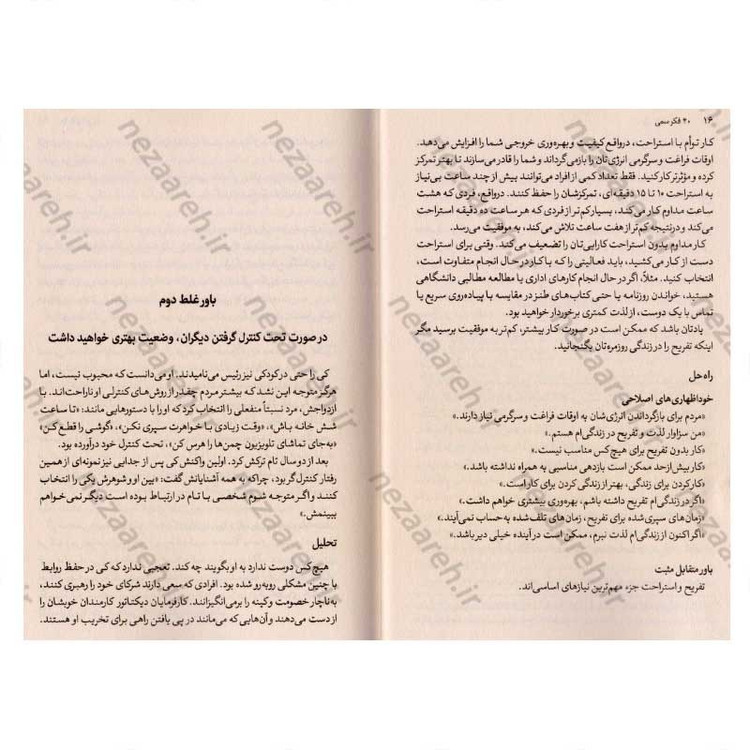 ۱۶ ۴۰ فکر سمی
کار توأم با استراحت، درواقع کیفیت و بهره‌وری خروجی شما را افزایش می‌دهد.
اوقات فراغت و سرگرمی انرژی‌تان را بازمی‌گرداند و شما را قادر می‌سازند تا بهتر تمرکز
کرده و مؤثرتر کار کنید. فقط تعداد کمی از افراد می‌توانند بیش از چند ساعت بی‌نیاز
به استراحت ۱۰ تا ۱۵ دقیقه‌ای، تمرکزشان را حفظ کنند. درواقع، فردی که هشت
ساعت مداوم کار می‌کند، بسیار کم‌تر از فردی که هر ساعت ده دقیقه استراحت
می‌کند و درنتیجه کم‌تر از هفت ساعت تلاش می‌کند، به موفقیت می‌رسد.
کار مداوم بدون استراحت کارایی‌تان را تضعیف می‌کند. وقتی برای استراحت
دست از کار می‌کشید، باید فعالیتی را که با کار در حال انجام متفاوت است،
انتخاب کنید. مثلاً، اگر در حال انجام کارهای اداری یا مطالعه مطالبی دانشگاهی
هستید، خواندن روزنامه یا حتی کتاب‌های طنز در مقایسه با پیاده‌روی سریع یا
تماس با یک دوست، از لذت کمتری برخوردار خواهید بود.
یادتان باشد که ممکن است در صورت کار بیشتر، کم‌تر به موفقیت برسید مگر
اینکه تفریح را در زندگی روزمره‌تان بگنجانید.
راه‌حل
خوداظهاری‌های اصلاحی
«مردم برای بازگرداندن انرژی‌شان به اوقات فراغت و سرگرمی نیاز دارند.»
«من سزاوار لذت و تفریح در زندگی‌ام هستم.»
«کار بدون تفریح برای هیچ‌کس مناسب نیست.»
«کار بیش‌ازحد ممکن است بازدهی مناسبی به همراه نداشته باشد.»
«کار کردن برای زندگی، بهتر از زندگی کردن برای کار است.»
«اگر در زندگی‌ام تفریح داشته باشم، بهره‌وری بیشتری خواهم داشت.»
«زمان‌های سپری‌شده برای تفریح، زمان‌های تلف‌شده به‌حساب نمی‌آیند.»
«اگر اکنون از زندگی‌ام لذت نبرم، ممکن است در آینده خیلی دیر باشد.»
باور متقابل مثبت
تفریح و استراحت جزء مهم‌ترین نیازهای اساسی‌اند.
باور غلط دوم
در صورت تحت کنترل گرفتن دیگران، وضعیت بهتری خواهید داشت
کی را حتی در کودکی نیز رئیس می‌نامیدند. او می‌دانست که محبوب نیست، اما
هرگز متوجه این نشد که بیشتر مردم چقدر از روش‌های کنترلی او ناراحت‌اند. با
ازدواجش، مرد نسبتاً منفعلی را انتخاب کرد که او را با دستورهایی مانند: «تا ساعت
شش خانه باش»، «وقت زیادی با خواهرت سپری نکن»، «گوشی را قطع کن»
«به‌جای تماشای تلویزیون چمن‌ها را هرس کن»، تحت کنترل خود درآورده بود.
بعد از دو سال تام ترکش کرد. اولین واکنش کی پس از جدایی نیز نمونه‌ای از همین
رفتار کنترل‌گر بود، چراکه به همه آشنایانش گفت: «بین او و شوهرش یکی را انتخاب
کنند و اگر متوجه شوم شخصی با تام در ارتباط بوده است دیگر نمی‌خواهم
ببینمش.»
تحلیل
هیچ‌کس دوست ندارد به او بگویند چه کند. تعجبی ندارد که کی در حفظ روابط
با چنین مشکلی روبه‌رو شده بود. افرادی که سعی دارند شرکای خود را رهبری کنند،
به‌ناچار خصومت و کینه را برمی‌انگیزانند. کارفرمایان دیکتاتور کارمندان خوبشان را
از دست می‌دهند و آن‌هایی که می‌مانند در پی یافتن راهی برای تخریب او هستند.
nezaareh.ir